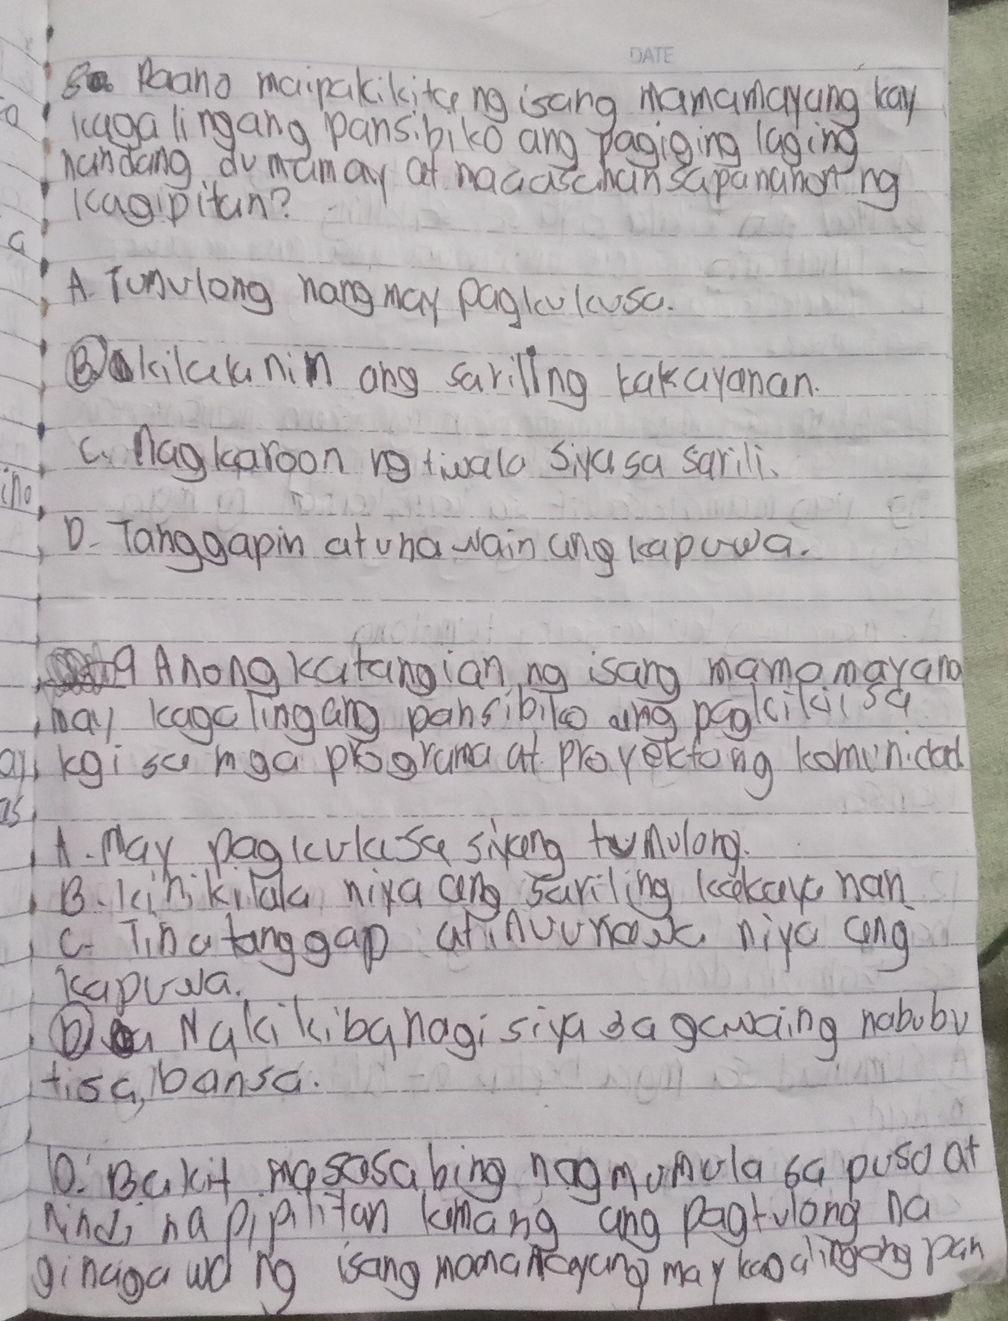 DATE
8. Paano maipakikita ng isang mamamayang kay
kagalingang pansibiko ang pagiging laging
handang dumamay at maaasahan sa panahon ng
kagipitan?
A. Tumulong nang may pagkukusa.
B. kilalanin ang sariling kakayanan.
C. Magkaroon ng tiwala siya sa sarili.
D. Tanggapin at unawain ang kapuwa.
9 Anong katangian ng isang mamamayang
may kagalingang pansibiko ang pagkikilsa
kgi sa mga programa at proyektong komunidad
A. May pagkukusa siyang tumulong.
B. kinikilala niya ang sariling kakayanan
C. Tinatanggap at inuunawa niya ang
kapuwa.
D. Nakikibahagi siya sa gawaing nabubu
ti sa bansa.
10. Bakit masasabing nagmumula sa puso at
hindi napipilitan lamang ang pagtulong na
ginagawa ng isang mamamayang may kagalingang pan